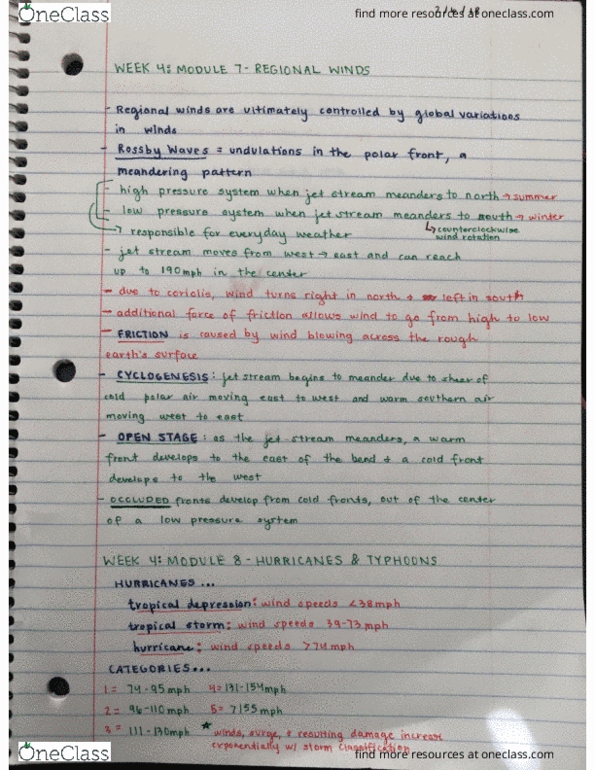 OneClass
find more resources at oneclass.com
WEEK 4: MODULE 7 - REGIONAL WINDS
- Regional winds are ultimately controlled by global variations
in winds
- Rossby Waves = undulations in the polar front, a
meandering pattern
- high pressure system when jet stream meanders to north → summer
- low pressure system when jet stream meanders to south → winter
→ responsible for everyday weather
↳ counterclockwise
wind rotation
- jet stream moves from west → east and can reach
up to 190mph in the center
- due to coriolis, wind turns right in north + left in south
- additional force of friction allows wind to go from high to low
- FRICTION is caused by wind blowing across the rough
earth's surface
- CYCLOGENESIS: jet stream begins to meander due to sheer of
cold polar air moving east to west and warm southern air
moving west to east
- OPEN STAGE: as the jet stream meanders, a warm
front develops to the east of the bend + a cold front
develops to the west
- OCCLUDED fronts develop from cold fronts, out of the center
of a low pressure system
WEEK 4: MODULE 8 - HURRICANES & TYPHOONS
HURRICANES...
tropical depression: wind speeds <38mph
tropical storm: wind speeds 39-73 mph
hurricane: wind speeds >74mph
CATEGORIES...
1 = 74-95mph 4 = 131-154mph
2 = 96-110mph 5 = >155mph
3 = 111-130mph ★ winds, surge, + resulting damage increase
exponentially w/ storm classification
OneClass
find more resources at oneclass.com